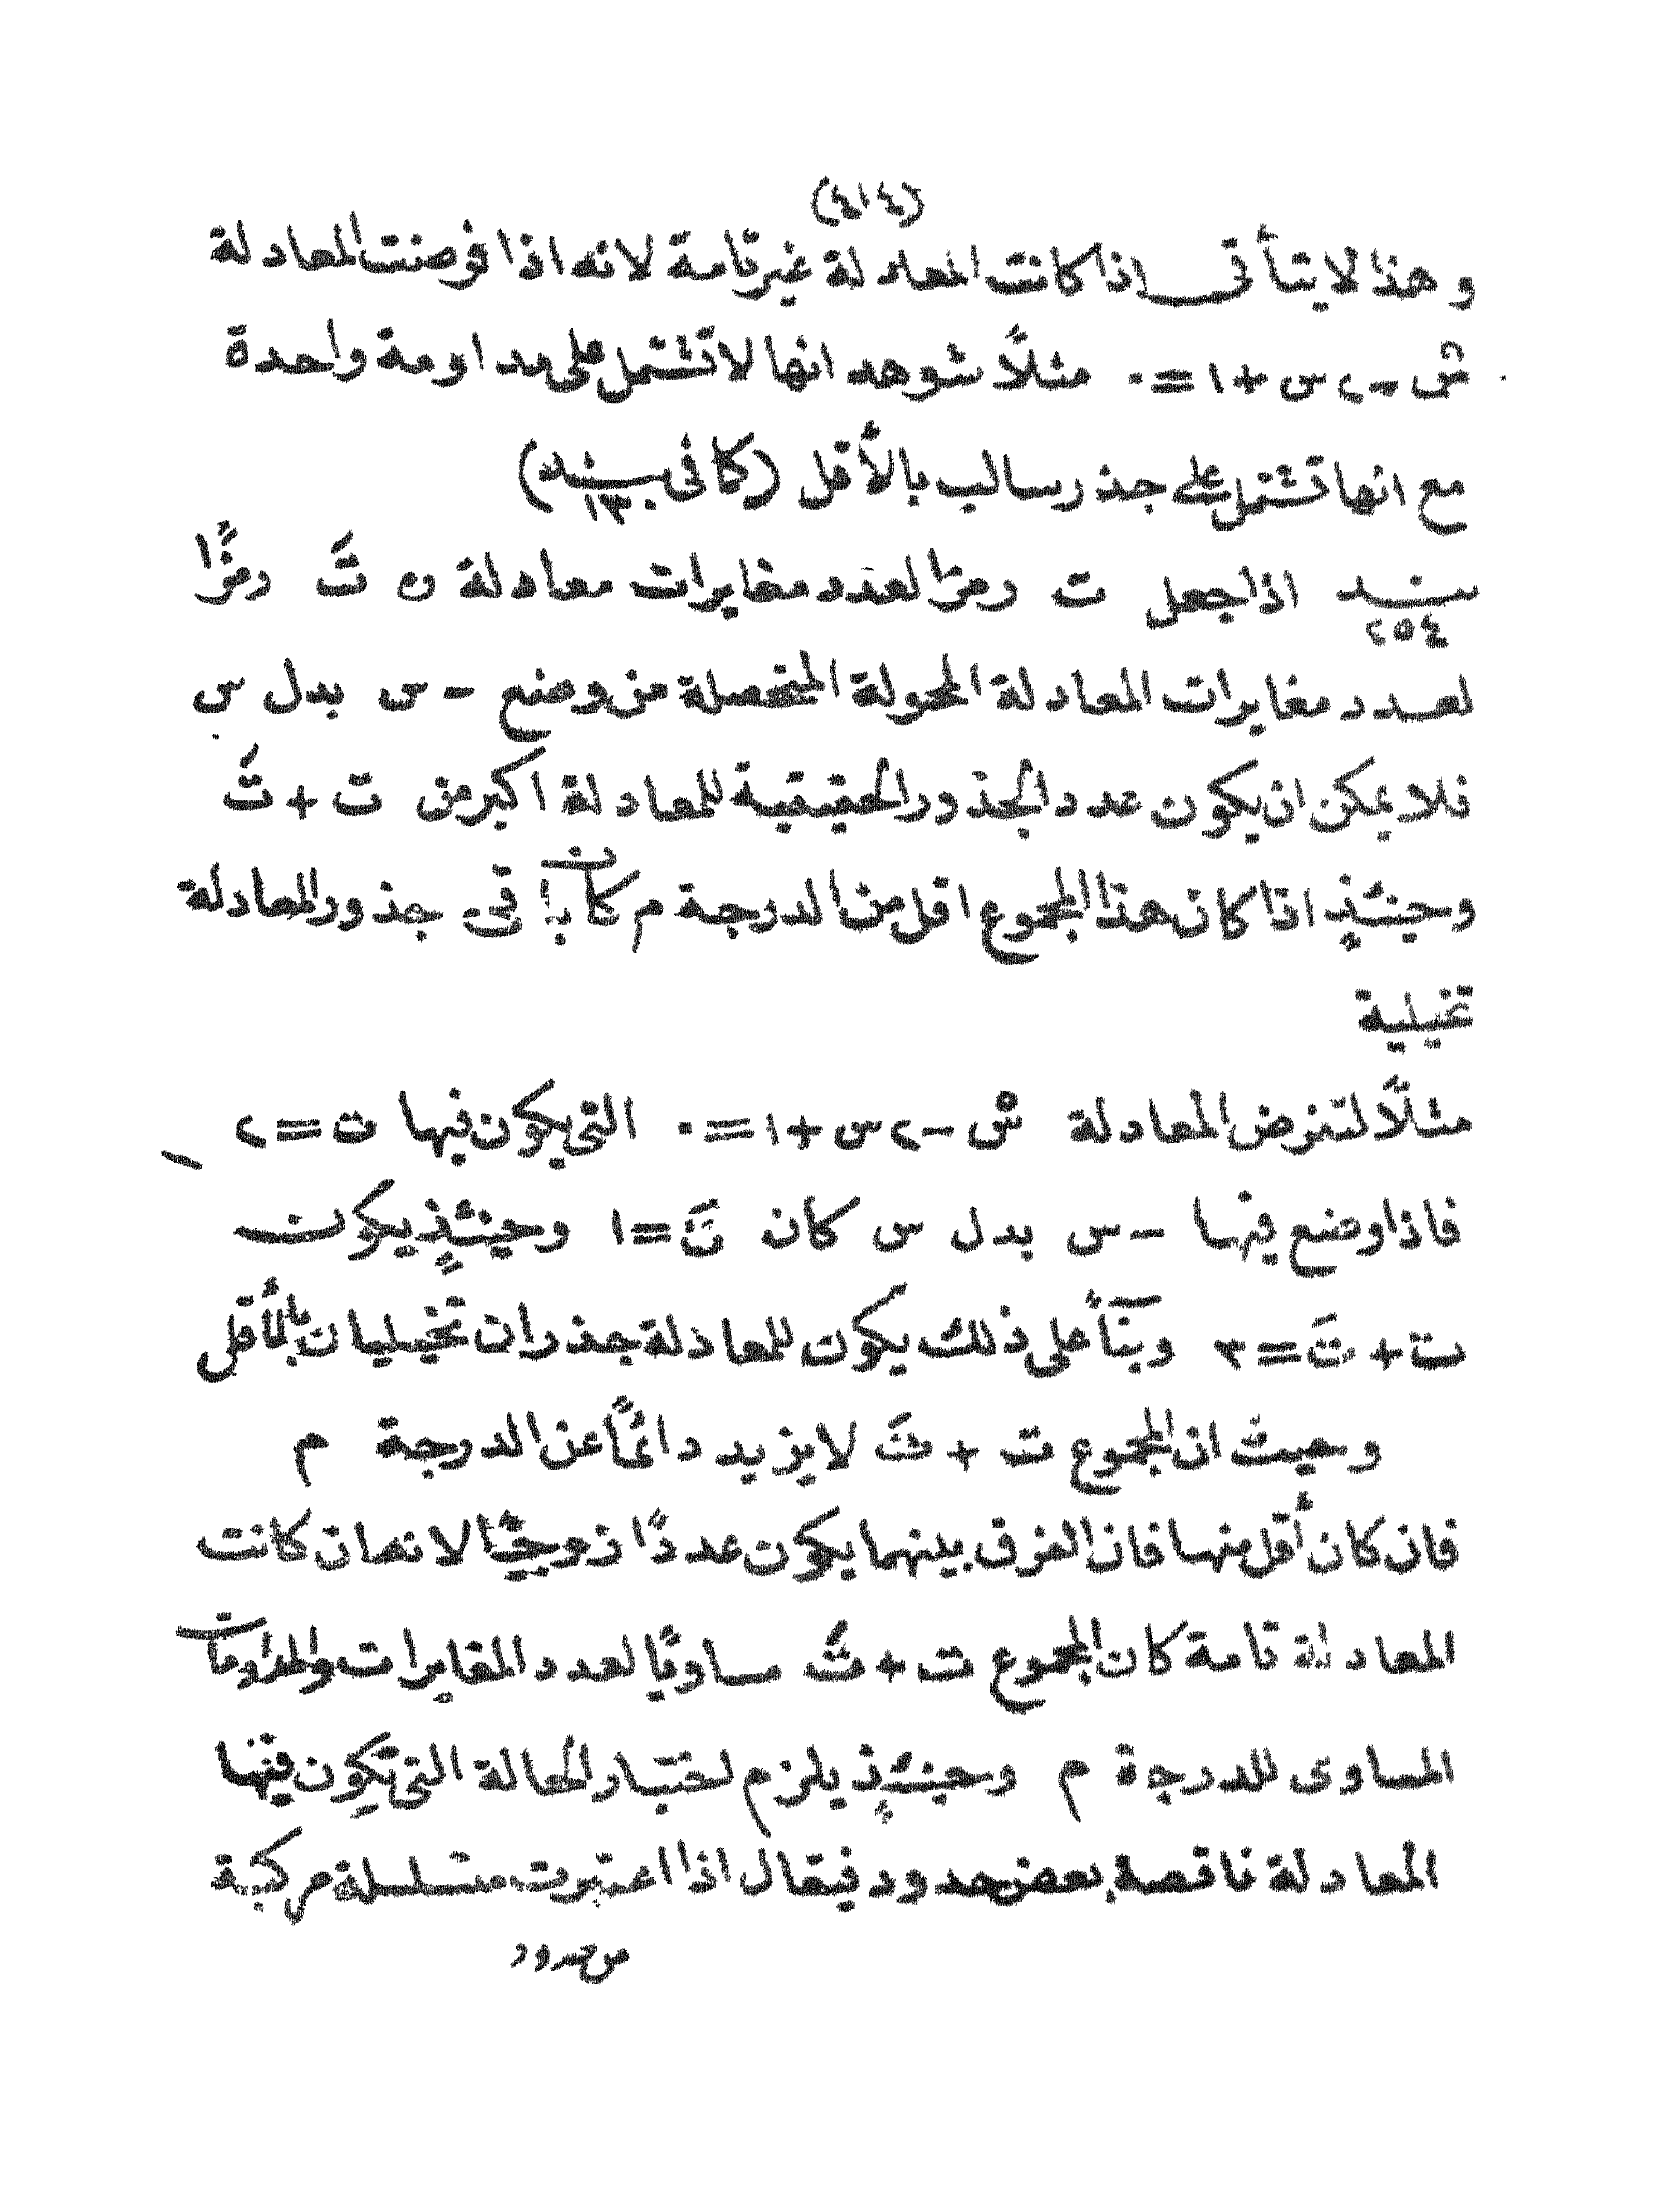 (٤١٤)
وهذا لا يتأتى اذا كانت المعادلة غير تامة لانه اذا فرضت المعادلة
س٢ - ٢س + ١ = ٠ مثلًا شوهد انها لا تشتمل على مداومة واحدة
مع انها تشتمل على جذر سالب بالأقل (كما فى بند ١٣)
بند ٢٥٤ اذا جعل ت رمزا لعدد مغايرات معادلة ه تَ رمزًا
لعدد مغايرات المعادلة المحولة المتحصلة من وضع - س بدل س
فلا يمكن ان يكون عدد الجذور الحقيقية للمعادلة اكبر من ت + تَ
وحينئذٍ اذا كان هذا المجموع اقل من الدرجة م كان فى جذور المعادلة
تخيلية
مثلًا لتفرض المعادلة س - ٢س + ١ = ٠ التى يكون فيها ت = ٢
فاذا وضع فيها - س بدل س كان تَ = ١ وحينئذٍ يكون
ت + تَ = ٣ وبنآءً على ذلك يكون للمعادلة جذران تخيليان بالأقل
وحيث ان المجموع ت + تَ لا يزيد دائمًا عن الدرجة م
فان كان أقل منها فان الفرق بينهما يكون عددًا زوجيًا لانه ان كانت
المعادلة تامة كان المجموع ت + تَ مساويًا لعدد المغايرات والمداومات
المساوى للدرجة م وحينئذٍ يلزم اختبار الحالة التى تكون فيها
المعادلة ناقصة بعض حدود فيقال اذا اعتبرت متسلسلة مركبة
من حدود